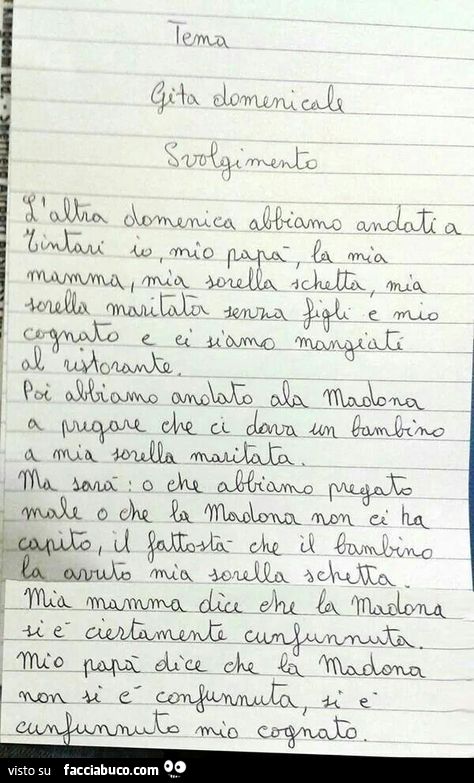 Tema
Gita domenicale
Svolgimento
L'altra domenica abbiamo andati a
Tintari io, mio papà, la mia
mamma, mia sorella schetta, mia
sorella maritata senza figli e mio
cognato e ci siamo mangiati
al ristorante.
Poi abbiamo andato ala Madona
a pregare che ci dava un bambino
a mia sorella maritata.
Ma sarà: o che abbiamo pregato
male o che la Madona non ci ha
capito, il fattostà che il bambino
la avuto mia sorella schetta.
Mia mamma dice che la Madona
si è ciertamente cunfunnuta.
Mio papà dice che la Madona
non si è confunnuta, si è
cunfunnuto mio cognato.
visto su facciabuco.com